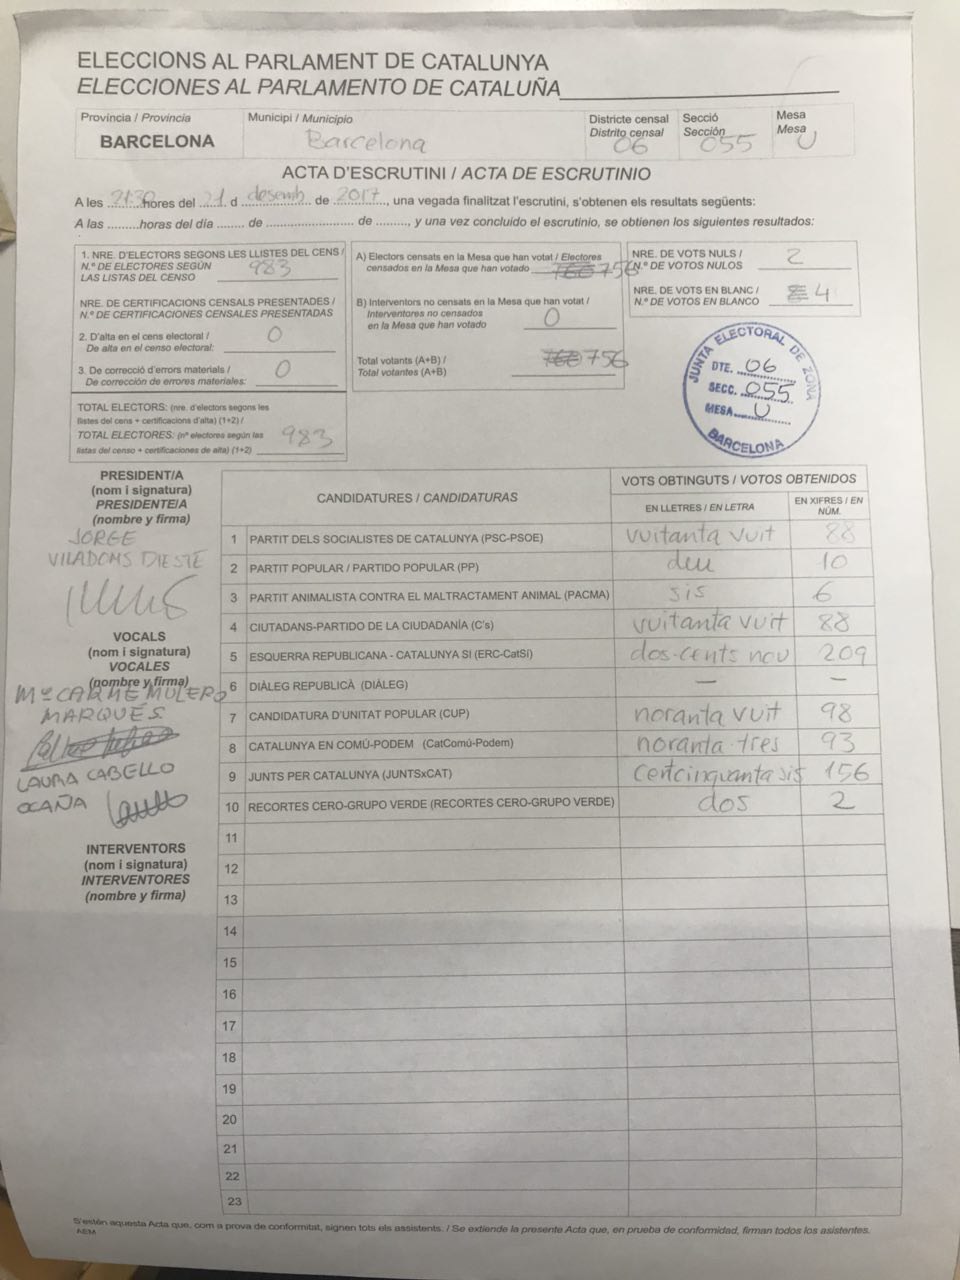 ELECCIONS AL PARLAMENT DE CATALUNYA
ELECCIONES AL PARLAMENTO DE CATALUÑA
Província / Provincia
BARCELONA
Municipi / Municipio
Barcelona
Districte censal
Distrito censal
06
Secció
Sección
055
Mesa
Mesa
U
ACTA D'ESCRUTINI / ACTA DE ESCRUTINIO
A les 21:30 hores del 21 d desemb de 2017, una vegada finalitzat l'escrutini, s'obtenen els resultats següents:
A las .........horas del día ...... de ........................ de .........., y una vez concluido el escrutinio, se obtienen los siguientes resultados:
1. NRE. D'ELECTORS SEGONS LES LLISTES DEL CENS /
N.º DE ELECTORES SEGÚN
LAS LISTAS DEL CENSO 983
NRE. DE CERTIFICACIONS CENSALS PRESENTADES /
N.º DE CERTIFICACIONES CENSALES PRESENTADAS
2. D'alta en el cens electoral /
De alta en el censo electoral: 0
3. De correcció d'errors materials /
De corrección de errores materiales: 0
TOTAL ELECTORS: (nre. d'electors segons les
llistes del cens + certificacions d'alta) (1+2) /
TOTAL ELECTORES: (nº electores según las
listas del censo + certificaciones de alta) (1+2) 983
A) Electors censats en la Mesa que han votat / Electores
censados en la Mesa que han votado 756
B) Interventors no censats en la Mesa que han votat /
Interventores no censados
en la Mesa que han votado 0
Total votants (A+B) /
Total votantes (A+B) 756
NRE. DE VOTS NULS /
N.º DE VOTOS NULOS 2
NRE. DE VOTS EN BLANC /
N.º DE VOTOS EN BLANCO 4
JUNTA ELECTORAL DE ZONA
DTE. 06
SECC. 055
MESA U
BARCELONA
PRESIDENT/A
(nom i signatura)
PRESIDENTE/A
(nombre y firma)
JORGE
VILADOMS DIESTE
VOCALS
(nom i signatura)
VOCALES
(nombre y firma)
Mª CARME MULERO
MARQUÉS
LAURA CABELLO
OCAÑA
INTERVENTORS
(nom i signatura)
INTERVENTORES
(nombre y firma)
CANDIDATURES / CANDIDATURAS
VOTS OBTINGUTS / VOTOS OBTENIDOS
EN LLETRES / EN LETRA
EN XIFRES / EN
NÚM.
1 PARTIT DELS SOCIALISTES DE CATALUNYA (PSC-PSOE) vuitanta vuit 88
2 PARTIT POPULAR / PARTIDO POPULAR (PP) deu 10
3 PARTIT ANIMALISTA CONTRA EL MALTRACTAMENT ANIMAL (PACMA) sis 6
4 CIUTADANS-PARTIDO DE LA CIUDADANÍA (C's) vuitanta vuit 88
5 ESQUERRA REPUBLICANA - CATALUNYA SI (ERC-CatSí) dos-cents nou 209
6 DIÀLEG REPUBLICÀ (DIÀLEG) — —
7 CANDIDATURA D'UNITAT POPULAR (CUP) noranta vuit 98
8 CATALUNYA EN COMÚ-PODEM (CatComú-Podem) noranta-tres 93
9 JUNTS PER CATALUNYA (JUNTSxCAT) centcinquanta sis 156
10 RECORTES CERO-GRUPO VERDE (RECORTES CERO-GRUPO VERDE) dos 2
11
12
13
14
15
16
17
18
19
20
21
22
23
S'estén aquesta Acta que, com a prova de conformitat, signen tots els assistents. / Se extiende la presente Acta que, en prueba de conformidad, firman todos los asistentes.
AEM